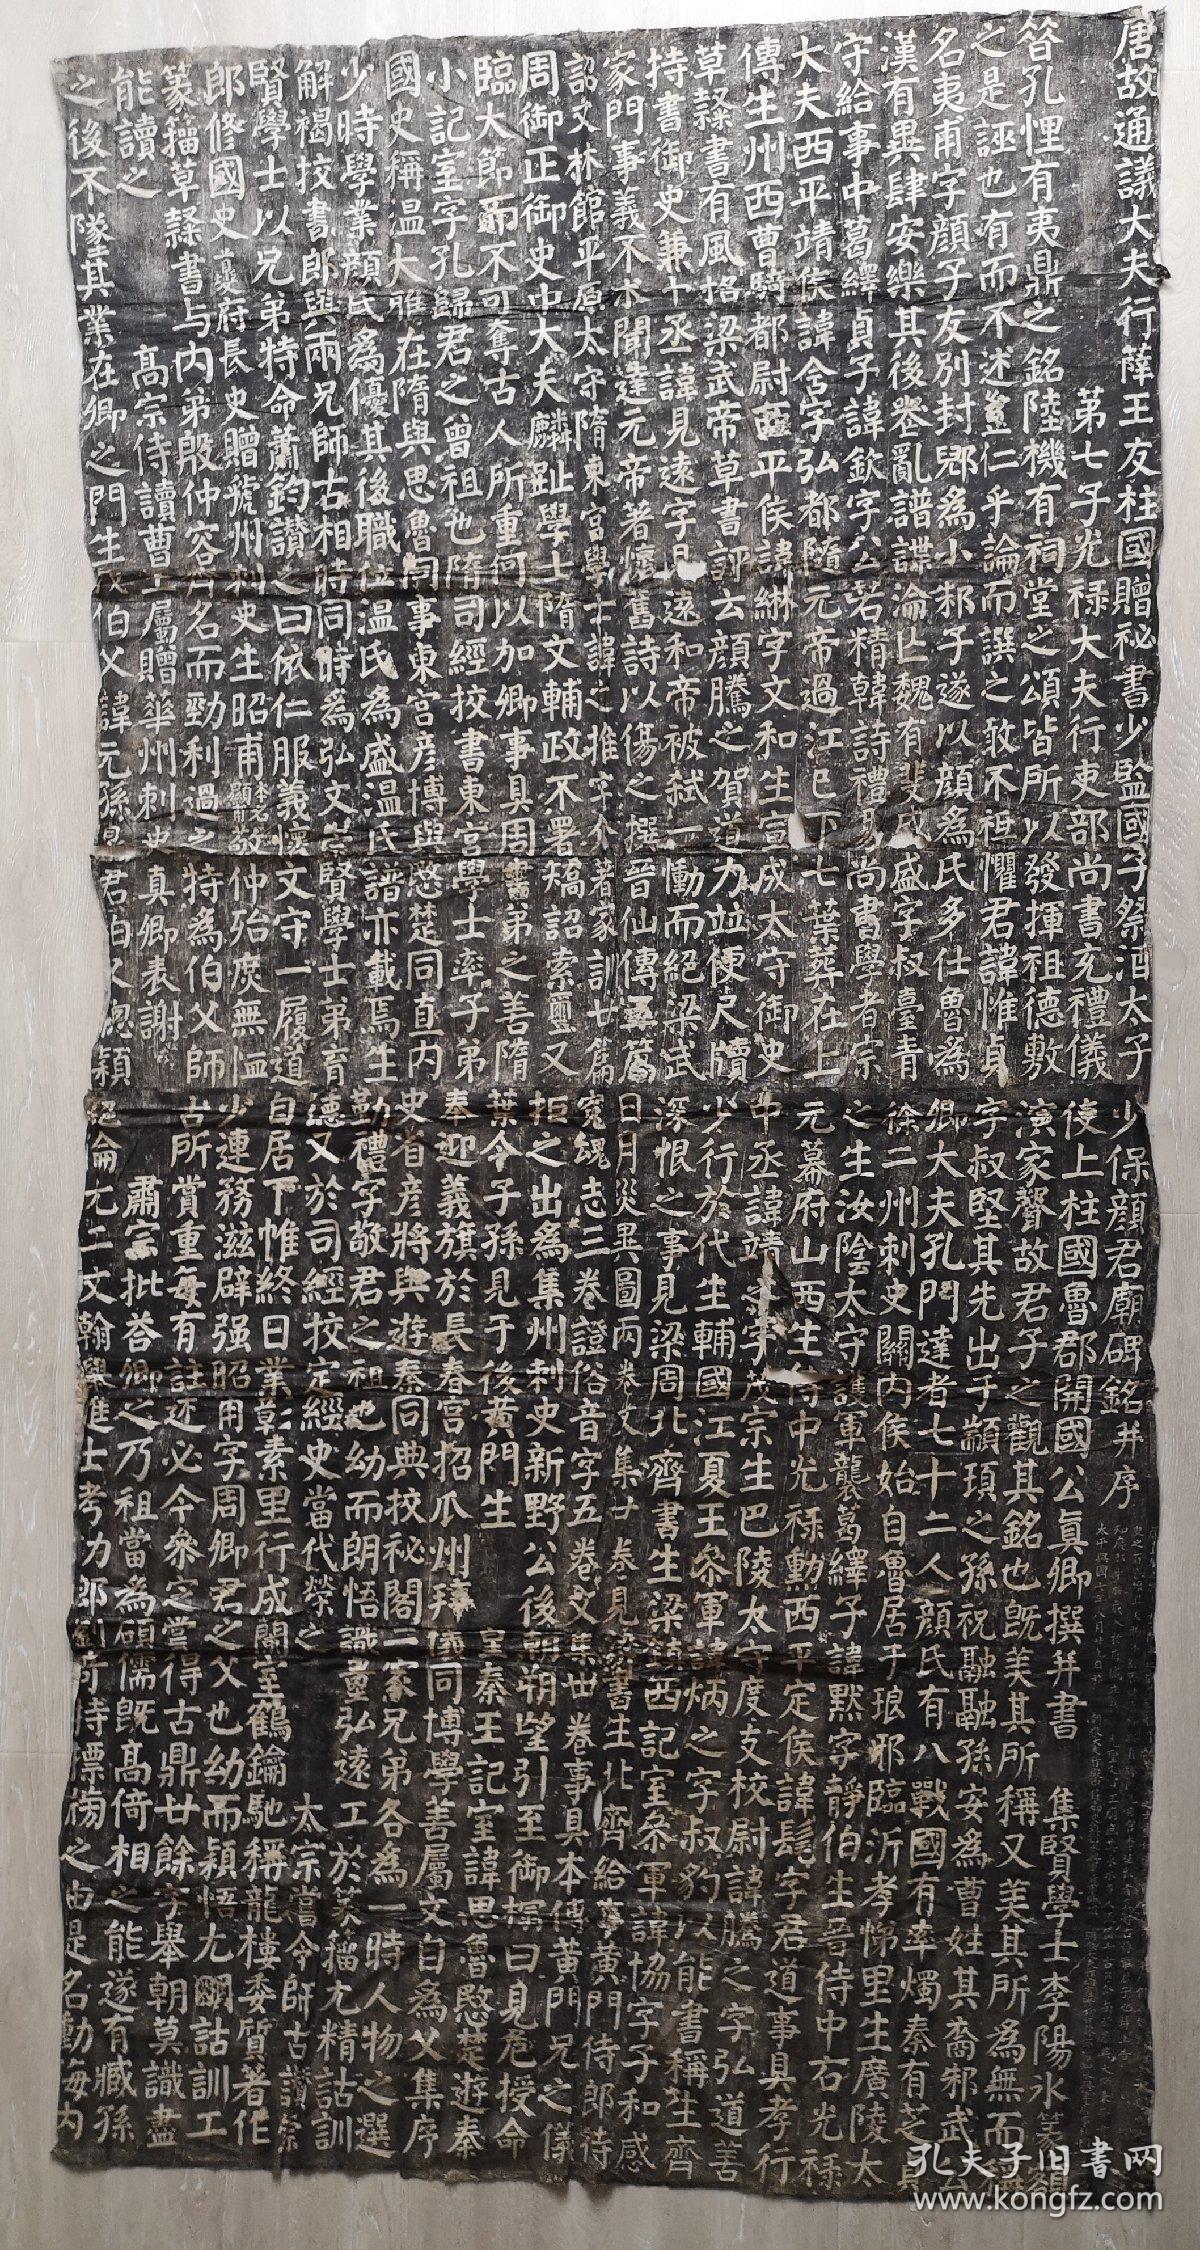 唐故通議大夫行薛王友柱國贈祕書少監國子祭酒太子少保顏君廟碑銘并序
第七子光祿大夫行吏部尚書充禮儀使上柱國魯郡開國公真卿撰并書 集賢學士李陽冰篆額
昝孔悝有夷鼎之銘陸機有祠堂之頌皆所以發揮祖德敷演家聲故君子之觀其銘也既美其所稱又美其所為無而稱
之是誣也有而不述豈仁乎論而譔之敢不祗懼君諱惟貞字叔堅其先出于顓頊之孫祝融融孫安為曹姓其裔邾武公
名夷甫字顏子友別封郳為小邾子遂以顏為氏多仕魯為卿大夫孔門達者七十二人顏氏有八戰國有率燭秦有芝貞
漢有異肆安樂其後喪亂譜諜淪亡魏有斐盛盛字叔臺青徐二州刺史關內侯始自魯居于琅邪臨沂孝悌里生廣陵太
守給事中葛繹貞子諱欽字公若精韓詩禮易尚書學者宗之生汝陰太守護軍襲葛繹子諱默字靜伯生晉侍中右光祿
大夫西平靖侯諱含字弘都隨元帝過江已下七葉葬在上元幕府山西生侍中光祿勳西平定侯諱髦字君道事具孝行
傳生州西曹騎都尉西平侯諱綝字文和生宣成太守御史中丞諱靖之字茂宗生巴陵太守度支校尉諱騰之字弘道善
草隸書有風格梁武帝草書評云顏騰之賀道力並便尺牘少行於代生輔國江夏王參軍諱炳之字叔豹以能書稱生齊
持書御史兼中丞諱見遠字見遠和帝被弒一慟而絕梁武深恨之事見梁周北齊書生梁鎮西記室參軍諱協字子和感
家門事義不求聞達元帝著懷舊詩以傷之撰晉仙傳五篇日月災異圖兩卷文集廿卷見梁書生北齊給事黃門侍郎待
詔文林館平原太守隋東宮學士諱之推字介著家訓廿篇冤魂志三卷證俗音字五卷文集卅卷事具本傳黃門兄之儀
周御正御史中大夫麟趾學士隋文輔政不署矯詔索璽又拒之出為集州刺史新野公後朝朔望引至御榻曰見危授命
臨大節而不可奪古人所重何以加卿事具周書弟之善隋葉令子孫見于後黃門生 皇秦王記室諱思魯愍楚遊秦
小記室字孔歸君之曾祖也隋司經校書東宮學士率子弟奉迎義旗於長春宮招瓜州拜儀同博學善屬文自為父集序
國史稱溫大雅在隋與思魯同事東宮彥博與愍楚同直內史省彥將與遊秦同典校祕閣二家兄弟各為一時人物之選
少時學業顏氏為優其後職位溫氏為盛溫氏譜亦載焉生勤禮字敬君之祖也幼而朗悟識量弘遠工於篆籀尤精詁訓
解褐校書郎與兩兄師古相時同時為弘文崇賢學士弟育德又於司經校定經史當代榮之 太宗嘗令師古讚崇
賢學士以兄弟特命蕭鈞讚之曰依仁服義懷文守一履道自居下帷終日業彰素里行成蘭室鶴鑰馳稱龍樓委質著作
郎修國史夔府長史贈虢州刺史生昭甫本名顯甫敬仲殆庶無恤少連務滋辟强昭甫字周卿君之父也幼而穎悟尤明詁訓工
篆籀草隸書与內弟殷仲容齊名而勁利過之特為伯父師古所賞重每有註述必令參定嘗得古鼎廿餘字舉朝莫識盡
能讀之 高宗侍讀曹王屬贈華州刺史真卿表謝 肅宗批荅卿之乃祖當為碩儒既高倚相之能遂有臧孫
之後不墜其業在卿之門生我伯父諱元孫 君伯父聰穎絕倫尤工文翰舉進士考功郎劉奇特標牓之由是名動海內
太平興國七年八月廿九日
孔夫子旧书网
www.kongfz.com